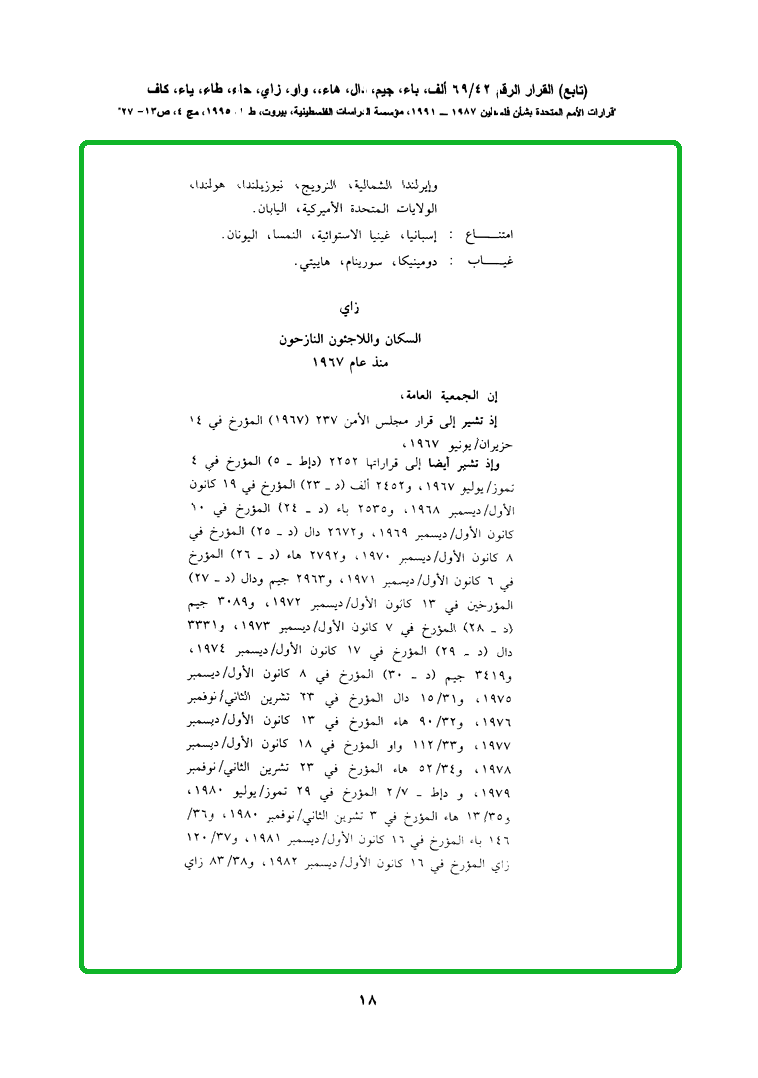 (تابع) القرار الرقم ٦٩/٤٢ ألف، باء، جيم، دال، هاء،، واو، زاي، حاء، طاء، ياء، كاف
"قرارات الأمم المتحدة بشأن فلسطين ١٩٨٧ ـ ١٩٩١، مؤسسة الدراسات الفلسطينية، بيروت، ط ١، ١٩٩٥، مج ٤، ص١٣- ٢٧"
وإيرلندا الشمالية، النرويج، نيوزيلندا، هولندا،
الولايات المتحدة الأميركية، اليابان.
امتنـــــاع : إسبانيا، غينيا الاستوائية، النمسا، اليونان.
غيـــــاب : دومينيكا، سورينام، هاييتي.
زاي
السكان واللاجئون النازحون
منذ عام ١٩٦٧
إن الجمعية العامة،
إذ تشير إلى قرار مجلس الأمن ٢٣٧ (١٩٦٧) المؤرخ في ١٤
حزيران/يونيو ١٩٦٧،
وإذ تشير أيضا إلى قراراتها ٢٢٥٢ (دإط ـ ٥) المؤرخ في ٤
تموز/يوليو ١٩٦٧، و٢٤٥٢ ألف (د ـ ٢٣) المؤرخ في ١٩ كانون
الأول/ديسمبر ١٩٦٨، و٢٥٣٥ باء (د ـ ٢٤) المؤرخ في ١٠
كانون الأول/ديسمبر ١٩٦٩، و٢٦٧٢ دال (د ـ ٢٥) المؤرخ في
٨ كانون الأول/ديسمبر ١٩٧٠، و٢٧٩٢ هاء (د ـ ٢٦) المؤرخ
في ٦ كانون الأول/ديسمبر ١٩٧١، و٢٩٦٣ جيم ودال (د ـ ٢٧)
المؤرخين في ١٣ كانون الأول/ديسمبر ١٩٧٢، و٣٠٨٩ جيم
(د ـ ٢٨) المؤرخ في ٧ كانون الأول/ديسمبر ١٩٧٣، و٣٣٣١
دال (د ـ ٢٩) المؤرخ في ١٧ كانون الأول/ديسمبر ١٩٧٤،
و٣٤١٩ جيم (د ـ ٣٠) المؤرخ في ٨ كانون الأول/ديسمبر
١٩٧٥، و١٥/٣١ دال المؤرخ في ٢٣ تشرين الثاني/نوفمبر
١٩٧٦، و٩٠/٣٢ هاء المؤرخ في ١٣ كانون الأول/ديسمبر
١٩٧٧، و١١٢/٣٣ واو المؤرخ في ١٨ كانون الأول/ديسمبر
١٩٧٨، و٥٢/٣٤ هاء المؤرخ في ٢٣ تشرين الثاني/نوفمبر
١٩٧٩، و دإط ـ ٢/٧ المؤرخ في ٢٩ تموز/يوليو ١٩٨٠،
و١٣/٣٥ هاء المؤرخ في ٣ تشرين الثاني/نوفمبر ١٩٨٠، و٣٦/
١٤٦ باء المؤرخ في ١٦ كانون الأول/ديسمبر ١٩٨١، و١٢٠/٣٧
زاي المؤرخ في ١٦ كانون الأول/ديسمبر ١٩٨٢، و٨٣/٣٨ زاي
١٨